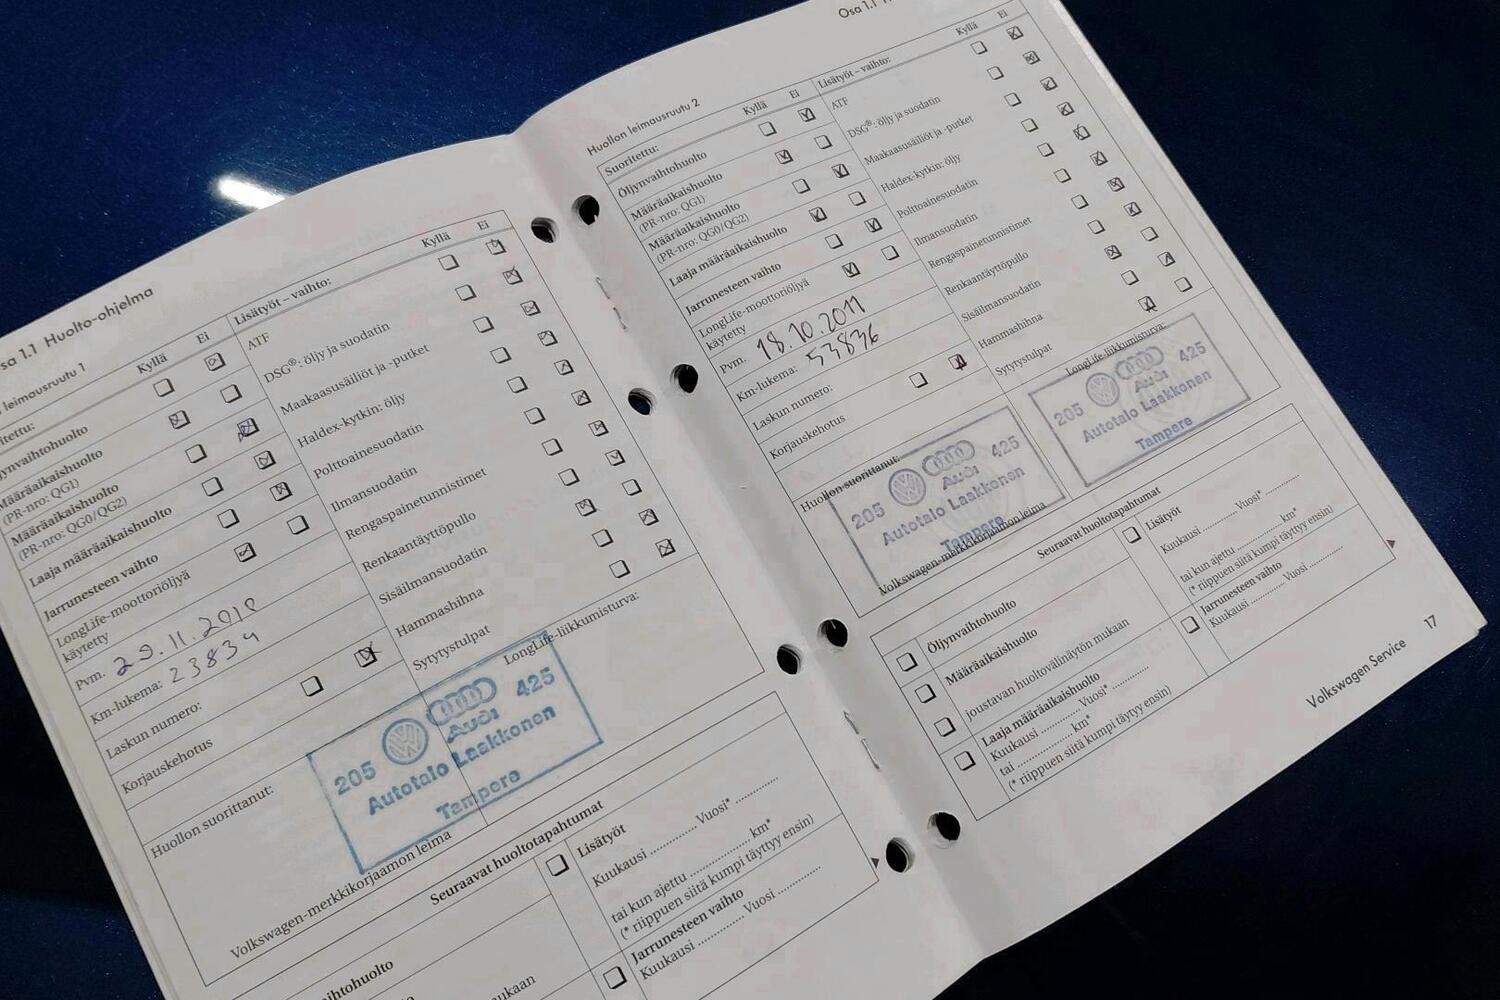 Osa 1.1 Huolto-ohjelma
leimausruutu 1
Kyllä Ei
Määräaikaishuolto
(PR-nro: QG1)
Määräaikaishuolto
(PR-nro: QG0/QG2)
Laaja määräaikaishuolto
Jarrunesteen vaihto
LongLife-moottoriöljyä
käytetty
Pvm. 29.11.2010
Km-lukema: 23834
Laskun numero:
Korjauskehotus
Lisätyöt – vaihto: Kyllä Ei
ATF
DSG®: öljy ja suodatin
Maakaasusäiliöt ja -putket
Haldex-kytkin: öljy
Polttoainesuodatin
Ilmansuodatin
Rengaspainetunnistimet
Renkaantäyttöpullo
Sisäilmansuodatin
Hammashihna
Sytytystulpat
Huollon suorittanut:
LongLife-liikkumisturva:
205 425
Audi
Autotalo Laakkonen
Tampere
Volkswagen-merkkikorjaamon leima
Seuraavat huoltotapahtumat
Lisätyöt
Kuukausi Vuosi*
tai kun ajettu km*
(* riippuen siitä kumpi täyttyy ensin)
Jarrunesteen vaihto
Kuukausi Vuosi
Osa 1.1
Huollon leimausruutu 2
Suoritettu: Kyllä Ei
Öljynvaihtohuolto
Määräaikaishuolto
(PR-nro: QG1)
Määräaikaishuolto
(PR-nro: QG0/QG2)
Laaja määräaikaishuolto
Jarrunesteen vaihto
LongLife-moottoriöljyä
käytetty
Pvm. 18.10.2011
Km-lukema: 53836
Laskun numero:
Korjauskehotus
Lisätyöt – vaihto: Kyllä Ei
ATF
DSG®: öljy ja suodatin
Maakaasusäiliöt ja -putket
Haldex-kytkin: öljy
Polttoainesuodatin
Ilmansuodatin
Rengaspainetunnistimet
Renkaantäyttöpullo
Sisäilmansuodatin
Hammashihna
Sytytystulpat
Huollon suorittanut:
205 425
Audi
Autotalo Laakkonen
Tampere
Volkswagen-merkkikorjaamon leima
LongLife-liikkumisturva:
205 425
Audi
Autotalo Laakkonen
Tampere
Seuraavat huoltotapahtumat
Öljynvaihtohuolto
Määräaikaishuolto
joustavan huoltovälinäytön mukaan
Laaja määräaikaishuolto
Kuukausi Vuosi*
tai km*
(* riippuen siitä kumpi täyttyy ensin)
Lisätyöt
Kuukausi Vuosi*
tai kun ajettu km*
(* riippuen siitä kumpi täyttyy ensin)
Jarrunesteen vaihto
Kuukausi Vuosi
Volkswagen Service 17